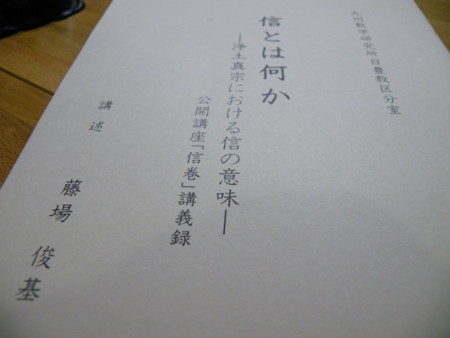 九州教学研究所日豊教区分室
信とは何か
―浄土真宗における信の意味―
公開講座「信巻」講義録
講述
藤場俊基